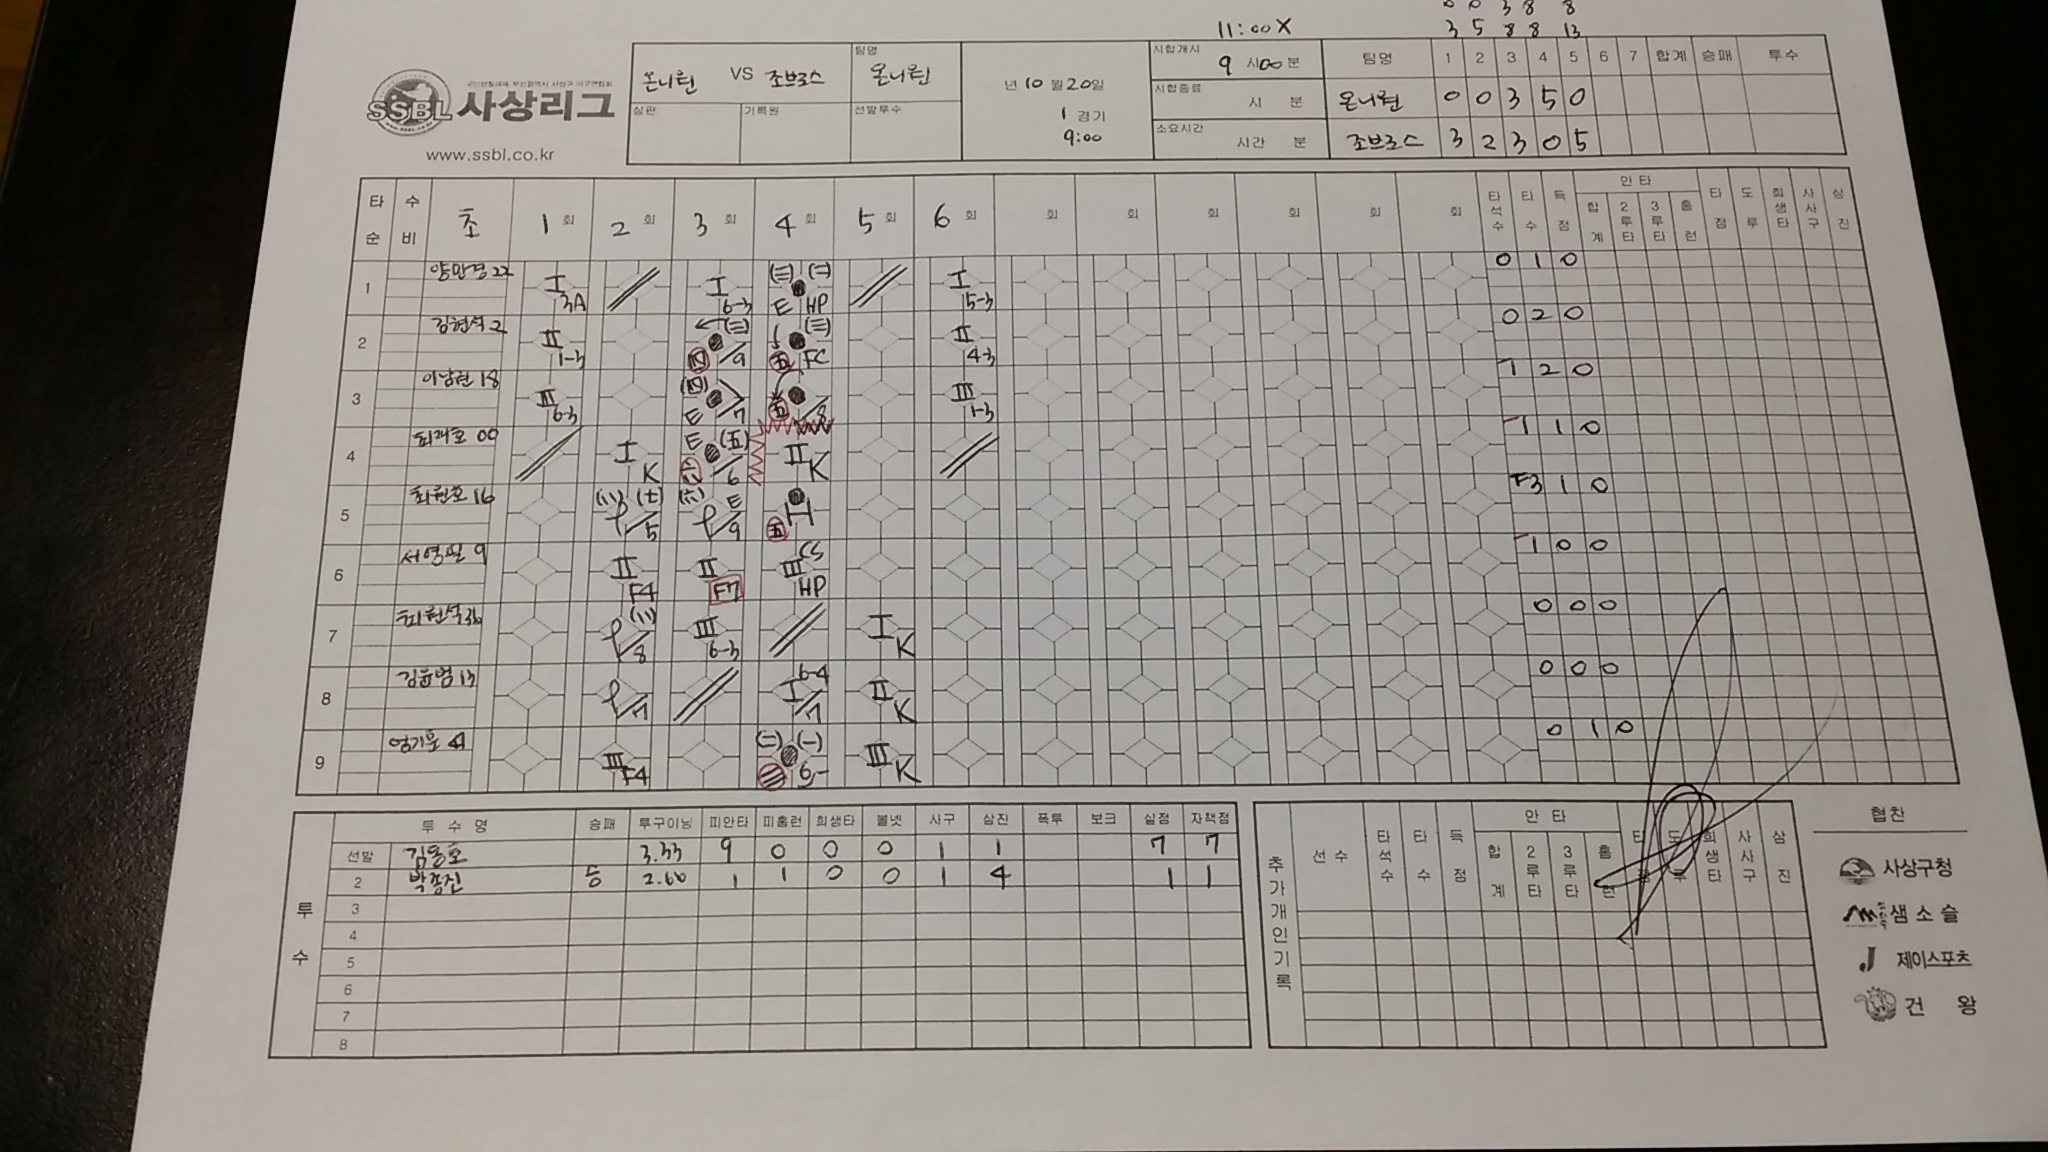 0 0 3 8 8
11:00 X 3 5 8 8 13
SSBL 사상리그
www.ssbl.co.kr
온니원 VS 조브로스
팀명 온니원
심판 기록원 선발투수
년 10 월 20 일
1 경기
9:00
시합개시 9 시 00 분
시합종료 시 분
소요시간 시간 분
팀명 1 2 3 4 5 6 7 합계 승패 투수
온니원 0 0 3 5 0
조브로스 3 2 3 0 5
타순 수비 초 1 회 2 회 3 회 4 회 5 회 6 회 회 회 회 회 회 회 타석수 타수 득점 안타 합계 2루타 3루타 홈런 타점 도루 희생타 사사구 삼진
1 양만경 22 I 3A I 6-3 (三) (二) E HP I 5-3 0 1 0
2 김현석 2 II 1-3 (三) 四 9 (三) 五 FC II 4-3 0 2 0
3 이남현 18 III 6-3 (四) E 7 五 8 III 1-3 1 2 0
4 최재호 00 I K E (五) 六 6 II K 1 1 0
5 최원호 16 (八) (七) 5 (六) E 9 H 五 F3 1 0
6 서영필 9 II F4 II F7 III CS HP 1 0 0
7 최원석 36 (八) 8 III 6-3 I K 0 0 0
8 김윤범 13 7 I 6-4 7 II K 0 0 0
9 엄기호 41 III F4 (二) (一) 三 6 III K 0 1 0
투수
투수명 승패 투구이닝 피안타 피홈런 희생타 볼넷 사구 삼진 폭투 보크 실점 자책점
선발 김동호 3.33 9 0 0 0 1 1 7 7
2 박종진 승 2.66 1 1 0 0 1 4 1 1
3
4
5
6
7
8
추가개인기록
선수 타석수 타수 득점 안타 합계 2루타 3루타 홈런 타점 도루 희생타 사사구 삼진
협찬
사상구청
샘소슬
J 제이스포츠
건왕